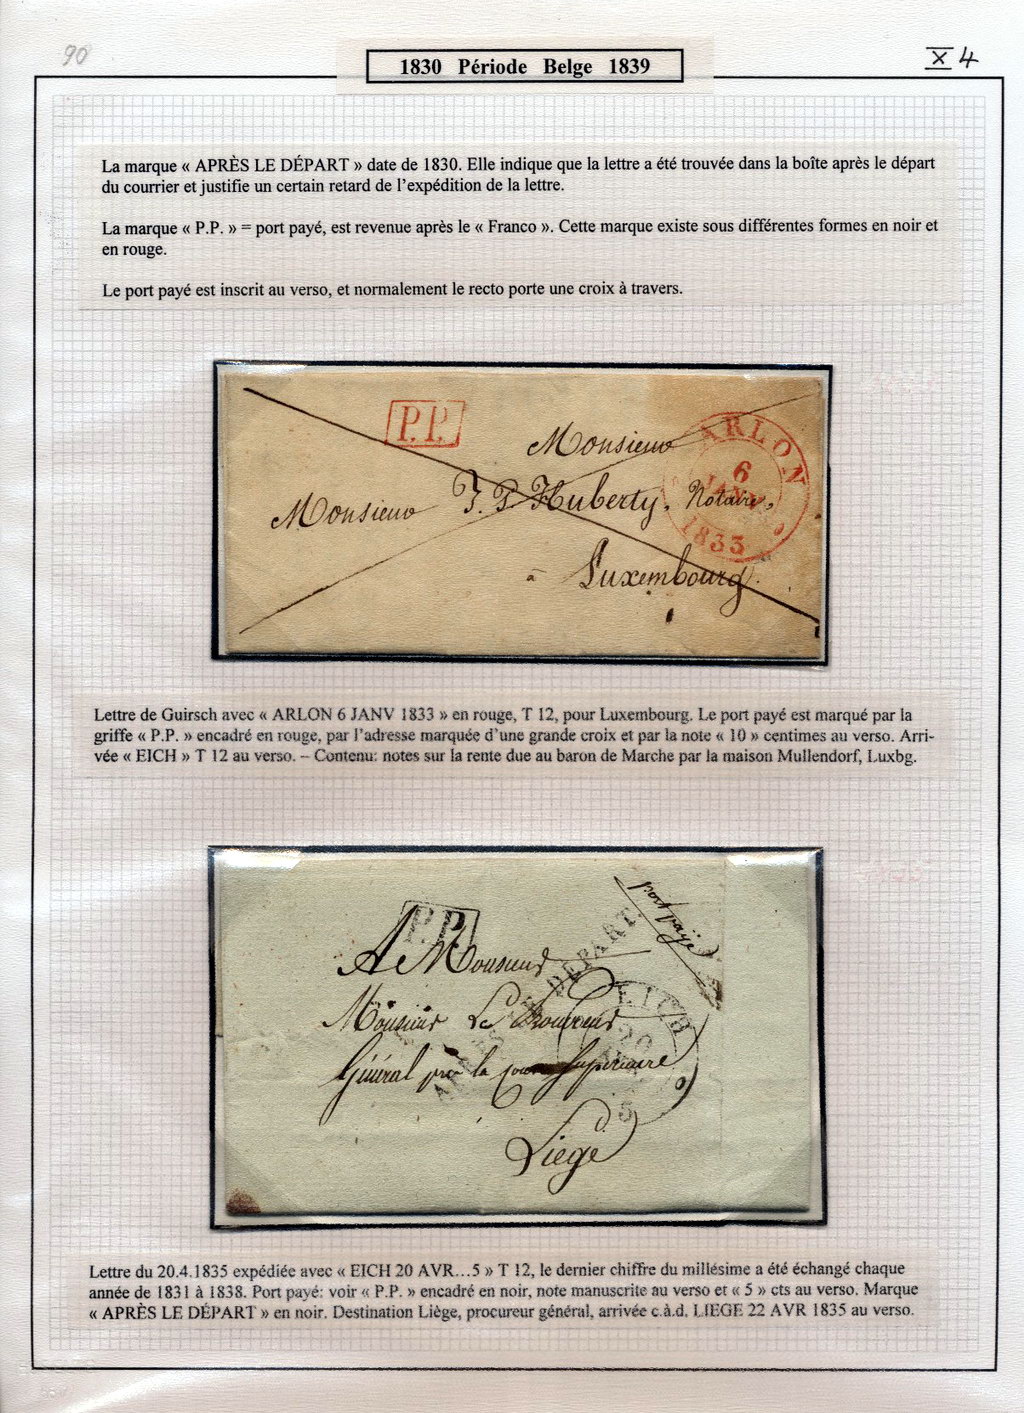 90
1830 Période Belge 1839
X 4
La marque « APRÈS LE DÉPART » date de 1830. Elle indique que la lettre a été trouvée dans la boîte après le départ
du courrier et justifie un certain retard de l’expédition de la lettre.
La marque « P.P. » = port payé, est revenue après le « Franco ». Cette marque existe sous différentes formes en noir et
en rouge.
Le port payé est inscrit au verso, et normalement le recto porte une croix à travers.
P.P.
ARLON
6
JANV.
1833
Monsieur
Monsieur J. P. Huberty, Notaire,
à Luxembourg.
Lettre de Guirsch avec « ARLON 6 JANV 1833 » en rouge, T 12, pour Luxembourg. Le port payé est marqué par la
griffe « P.P. » encadré en rouge, par l’adresse marquée d’une grande croix et par la note « 10 » centimes au verso. Arri-
vée « EICH » T 12 au verso. – Contenu: notes sur la rente due au baron de Marche par la maison Mullendorf, Luxbg.
port payé
P.P.
APRÈS LE DÉPART
EICH
20
5
A Monsieur
Monsieur Le Procureur
Général près la cour Supérieure
Liege
Lettre du 20.4.1835 expédiée avec « EICH 20 AVR...5 » T 12, le dernier chiffre du millésime a été échangé chaque
année de 1831 à 1838. Port payé: voir « P.P. » encadré en noir, note manuscrite au verso et « 5 » cts au verso. Marque
« APRÈS LE DÉPART » en noir. Destination Liège, procureur général, arrivée c.à.d. LIEGE 22 AVR 1835 au verso.